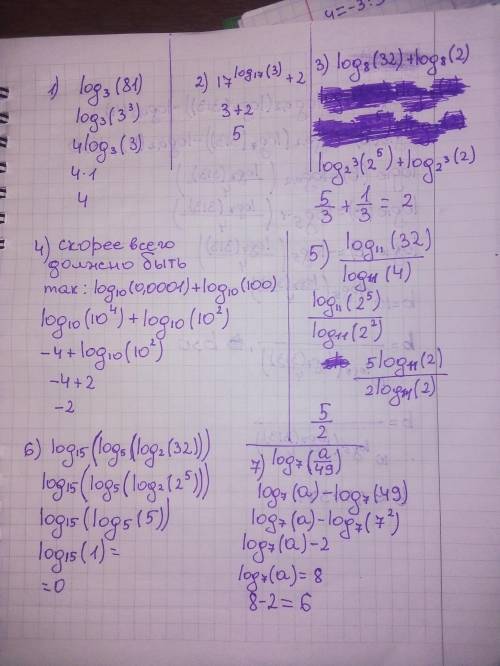 4=-3:3
1) log₃(81)
log₃(3³)
4log₃(3)
4·1
4
2) 17^log₁₇(3) + 2
3+2
5
3) log₈(32)+log₈(2)
log₂³(2⁵)+log₂³(2)
5/3 + 1/3 = 2
4) скорее всего
должно быть
так: log₁₀(0,0001)+log₁₀(100)
log₁₀(10⁴)+log₁₀(10²)
-4+log₁₀(10²)
-4+2
-2
5) log₁₁(32)
log₁₁(4)
log₁₁(2⁵)
log₁₁(2²)
5log₁₁(2)
2log₁₁(2)
5
2
6) log₁₅(log₅(log₂(32)))
log₁₅(log₅(log₂(2⁵)))
log₁₅(log₅(5))
log₁₅(1)=
=0
7) log₇(a/49)
log₇(a)-log₇(49)
log₇(a)-log₇(7²)
log₇(a)-2
log₇(a)=8
8-2=6